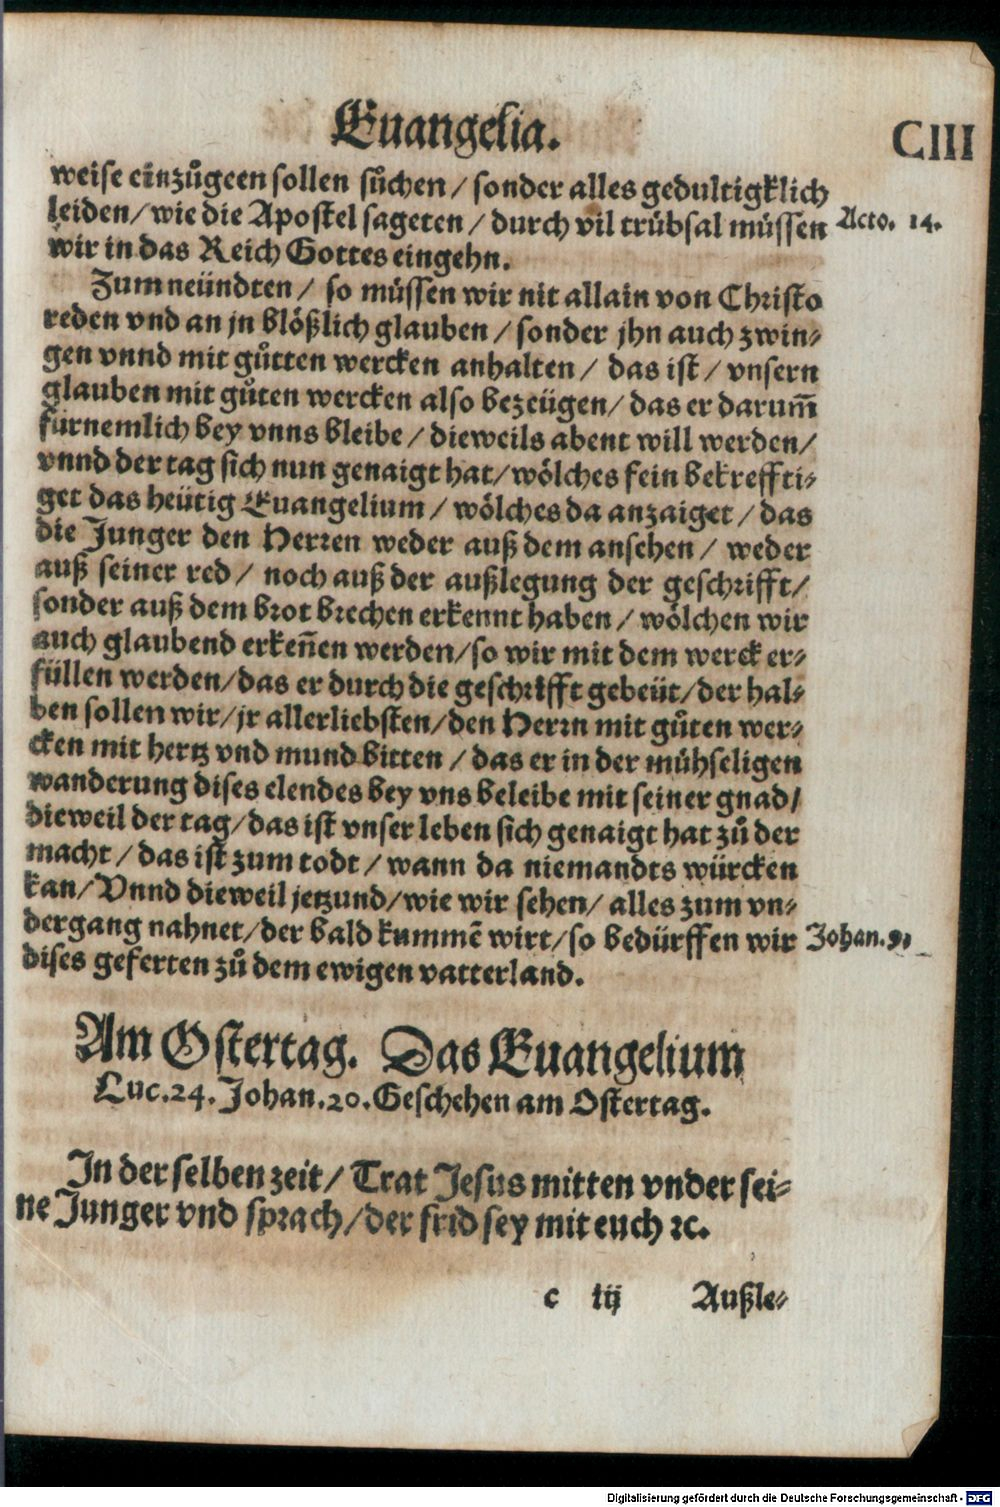 Euangelia. CIII
weise einzůgeen sollen sůchen / sonder alles gedultigklich
leiden / wie die Apostel sageten / durch vil trübsal müssen Acto. 14.
wir in das Reich Gottes eingehn.
Zum neündten / so müssen wir nit allain von Christo
reden vnd an jn blößlich glauben / sonder jhn auch zwin-
gen vnnd mit gůtten wercken anhalten / das ist / vnsern
glauben mit gůten wercken also bezeügen / das er darum̃
fürnemlich bey vnns bleibe / dieweils abent will werden /
vnnd der tag sich nun genaigt hat / wölches fein bekreffti-
get das heütig Euangelium / wölches da anzaiget / das
die Junger den Herren weder auß dem ansehen / weder
auß seiner red / noch auß der außlegung der geschrifft /
sonder auß dem brot brechen erkennt haben / wölchen wir
auch glaubend erkeñen werden / so wir mit dem werck er-
füllen werden / das er durch die geschrifft gebeüt / der hal-
ben sollen wir / jr allerliebsten / den Herrn mit gůten wer-
cken mit hertz vnd mund bitten / das er in der mühseligen
wanderung dises elendes bey vns beleibe mit seiner gnad /
dieweil der tag / das ist vnser leben sich genaigt hat zů der
nacht / das ist zum todt / wann da niemandts würcken
kan / Vnnd dieweil jetzund / wie wir sehen / alles zum vn-
dergang nahnet / der bald kummẽ wirt / so bedürffen wir Johan. 9.
dises geferten zů dem ewigen vatterland.
Am Ostertag. Das Euangelium
Luc. 24. Johan. 20. Geschehen am Ostertag.
In der selben zeit / Trat Jesus mitten vnder sei-
ne Junger vnd sprach / der frid sey mit euch ꝛc.
c iij Außle-
Digitalisierung gefördert durch die Deutsche Forschungsgemeinschaft - DFG